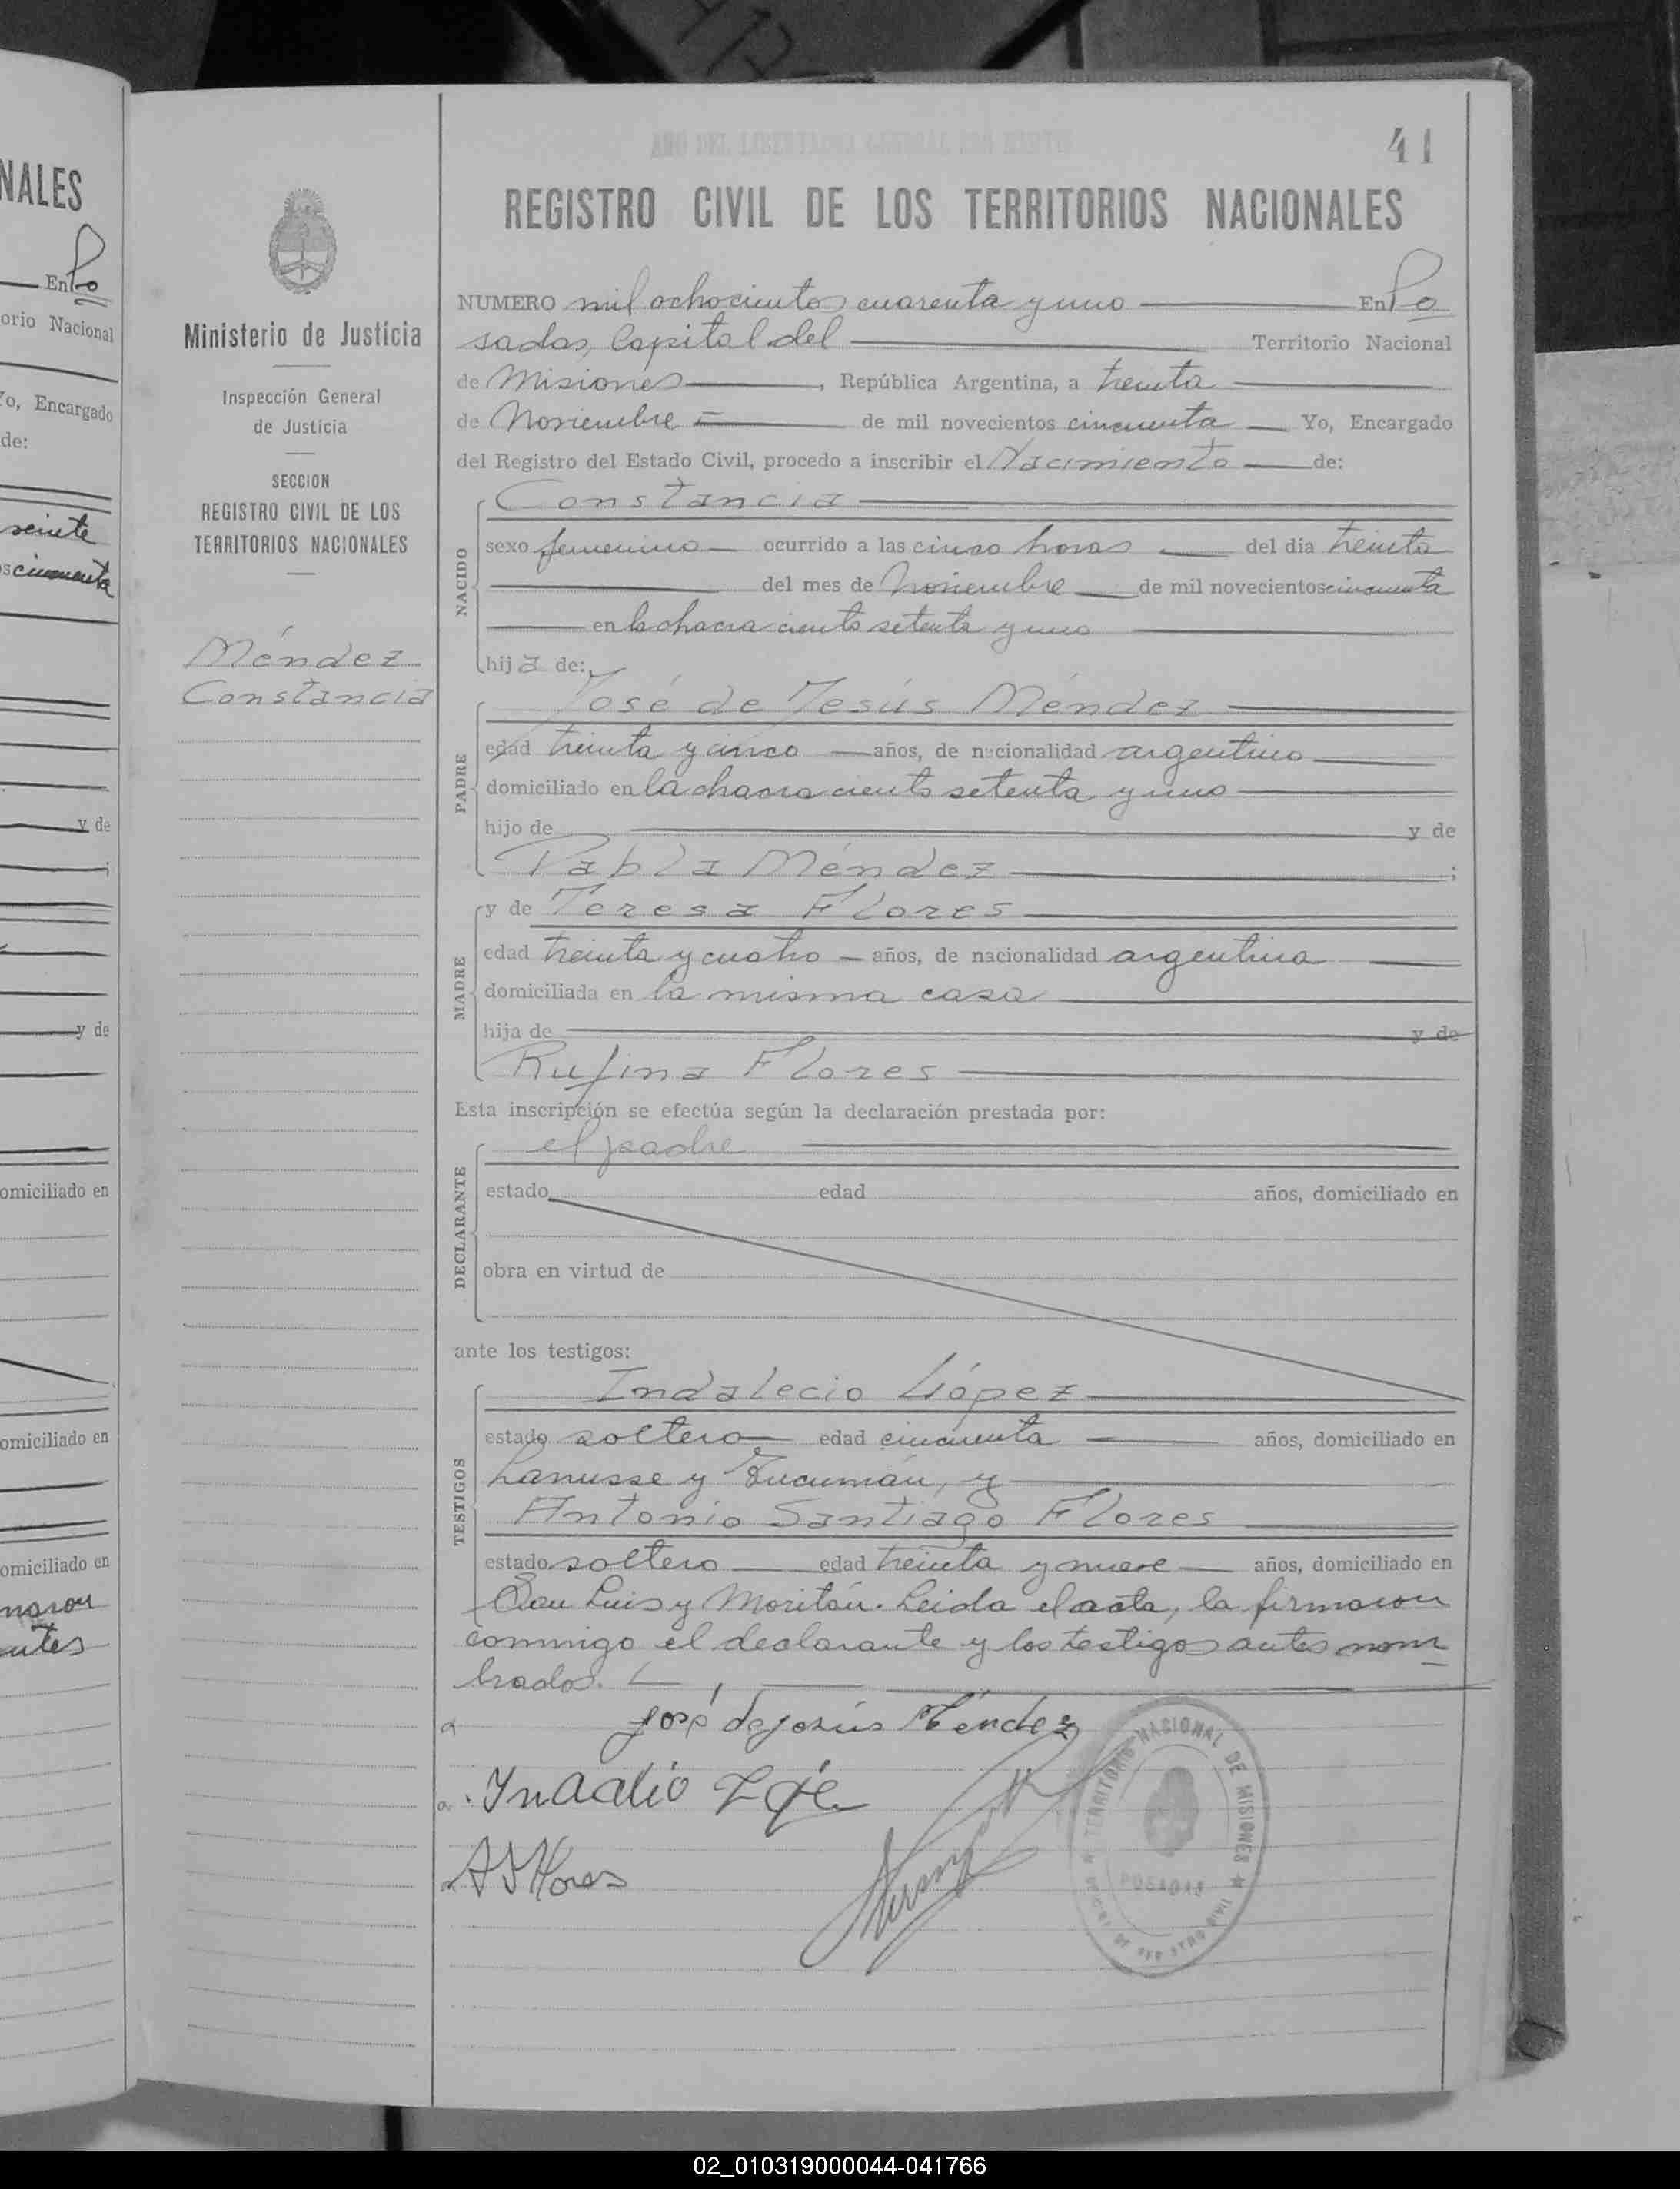 NALES
En Po
orio Nacional
Yo, Encargado
de:
cincuenta
y de
y de
omiciliado en
omiciliado en
omiciliado en
Ministerio de Justicia
Inspección General
de Justicia
SECCION
REGISTRO CIVIL DE LOS
TERRITORIOS NACIONALES
Méndez
Constancia
AÑO DEL LIBERTADOR GENERAL SAN MARTIN
41
REGISTRO CIVIL DE LOS TERRITORIOS NACIONALES
NUMERO mil ochocientos cuarenta y uno En Po
sadas, Capital del Territorio Nacional
de Misiones, República Argentina, a treinta
de Noviembre de mil novecientos cincuenta Yo, Encargado
del Registro del Estado Civil, procedo a inscribir el Nacimiento de:
NACIDO
Constancia
sexo femenino ocurrido a las cinco horas del día treinta
del mes de noviembre de mil novecientos cincuenta
en la chacra ciento setenta y uno
hija de:
PADRE
José de Jesús Méndez
edad treinta y cinco años, de nacionalidad argentino
domiciliado en la chacra ciento setenta y uno
hijo de y de
Pabla Méndez ;
MADRE
y de Teresa Flores
edad treinta y cuatro años, de nacionalidad argentina
domiciliada en la misma casa
hija de y de
Rufina Flores
Esta inscripción se efectúa según la declaración prestada por:
DECLARANTE
el padre
estado edad años, domiciliado en
obra en virtud de
ante los testigos:
TESTIGOS
Indalecio López
estado soltero edad cincuenta años, domiciliado en
Lanusse y Tucumán, y
Antonio Santiago Flores
estado soltero edad treinta y nueve años, domiciliado en
San Luis y Moritán. Leida el acta, la firmaron
conmigo el declarante y los testigos antes nom
brados.
José de Jesús Méndez
A S Flores
TERRITORIO NACIONAL DE MISIONES
POSADAS
OFICINA DE REGISTRO CIVIL
02_010319000044-041766